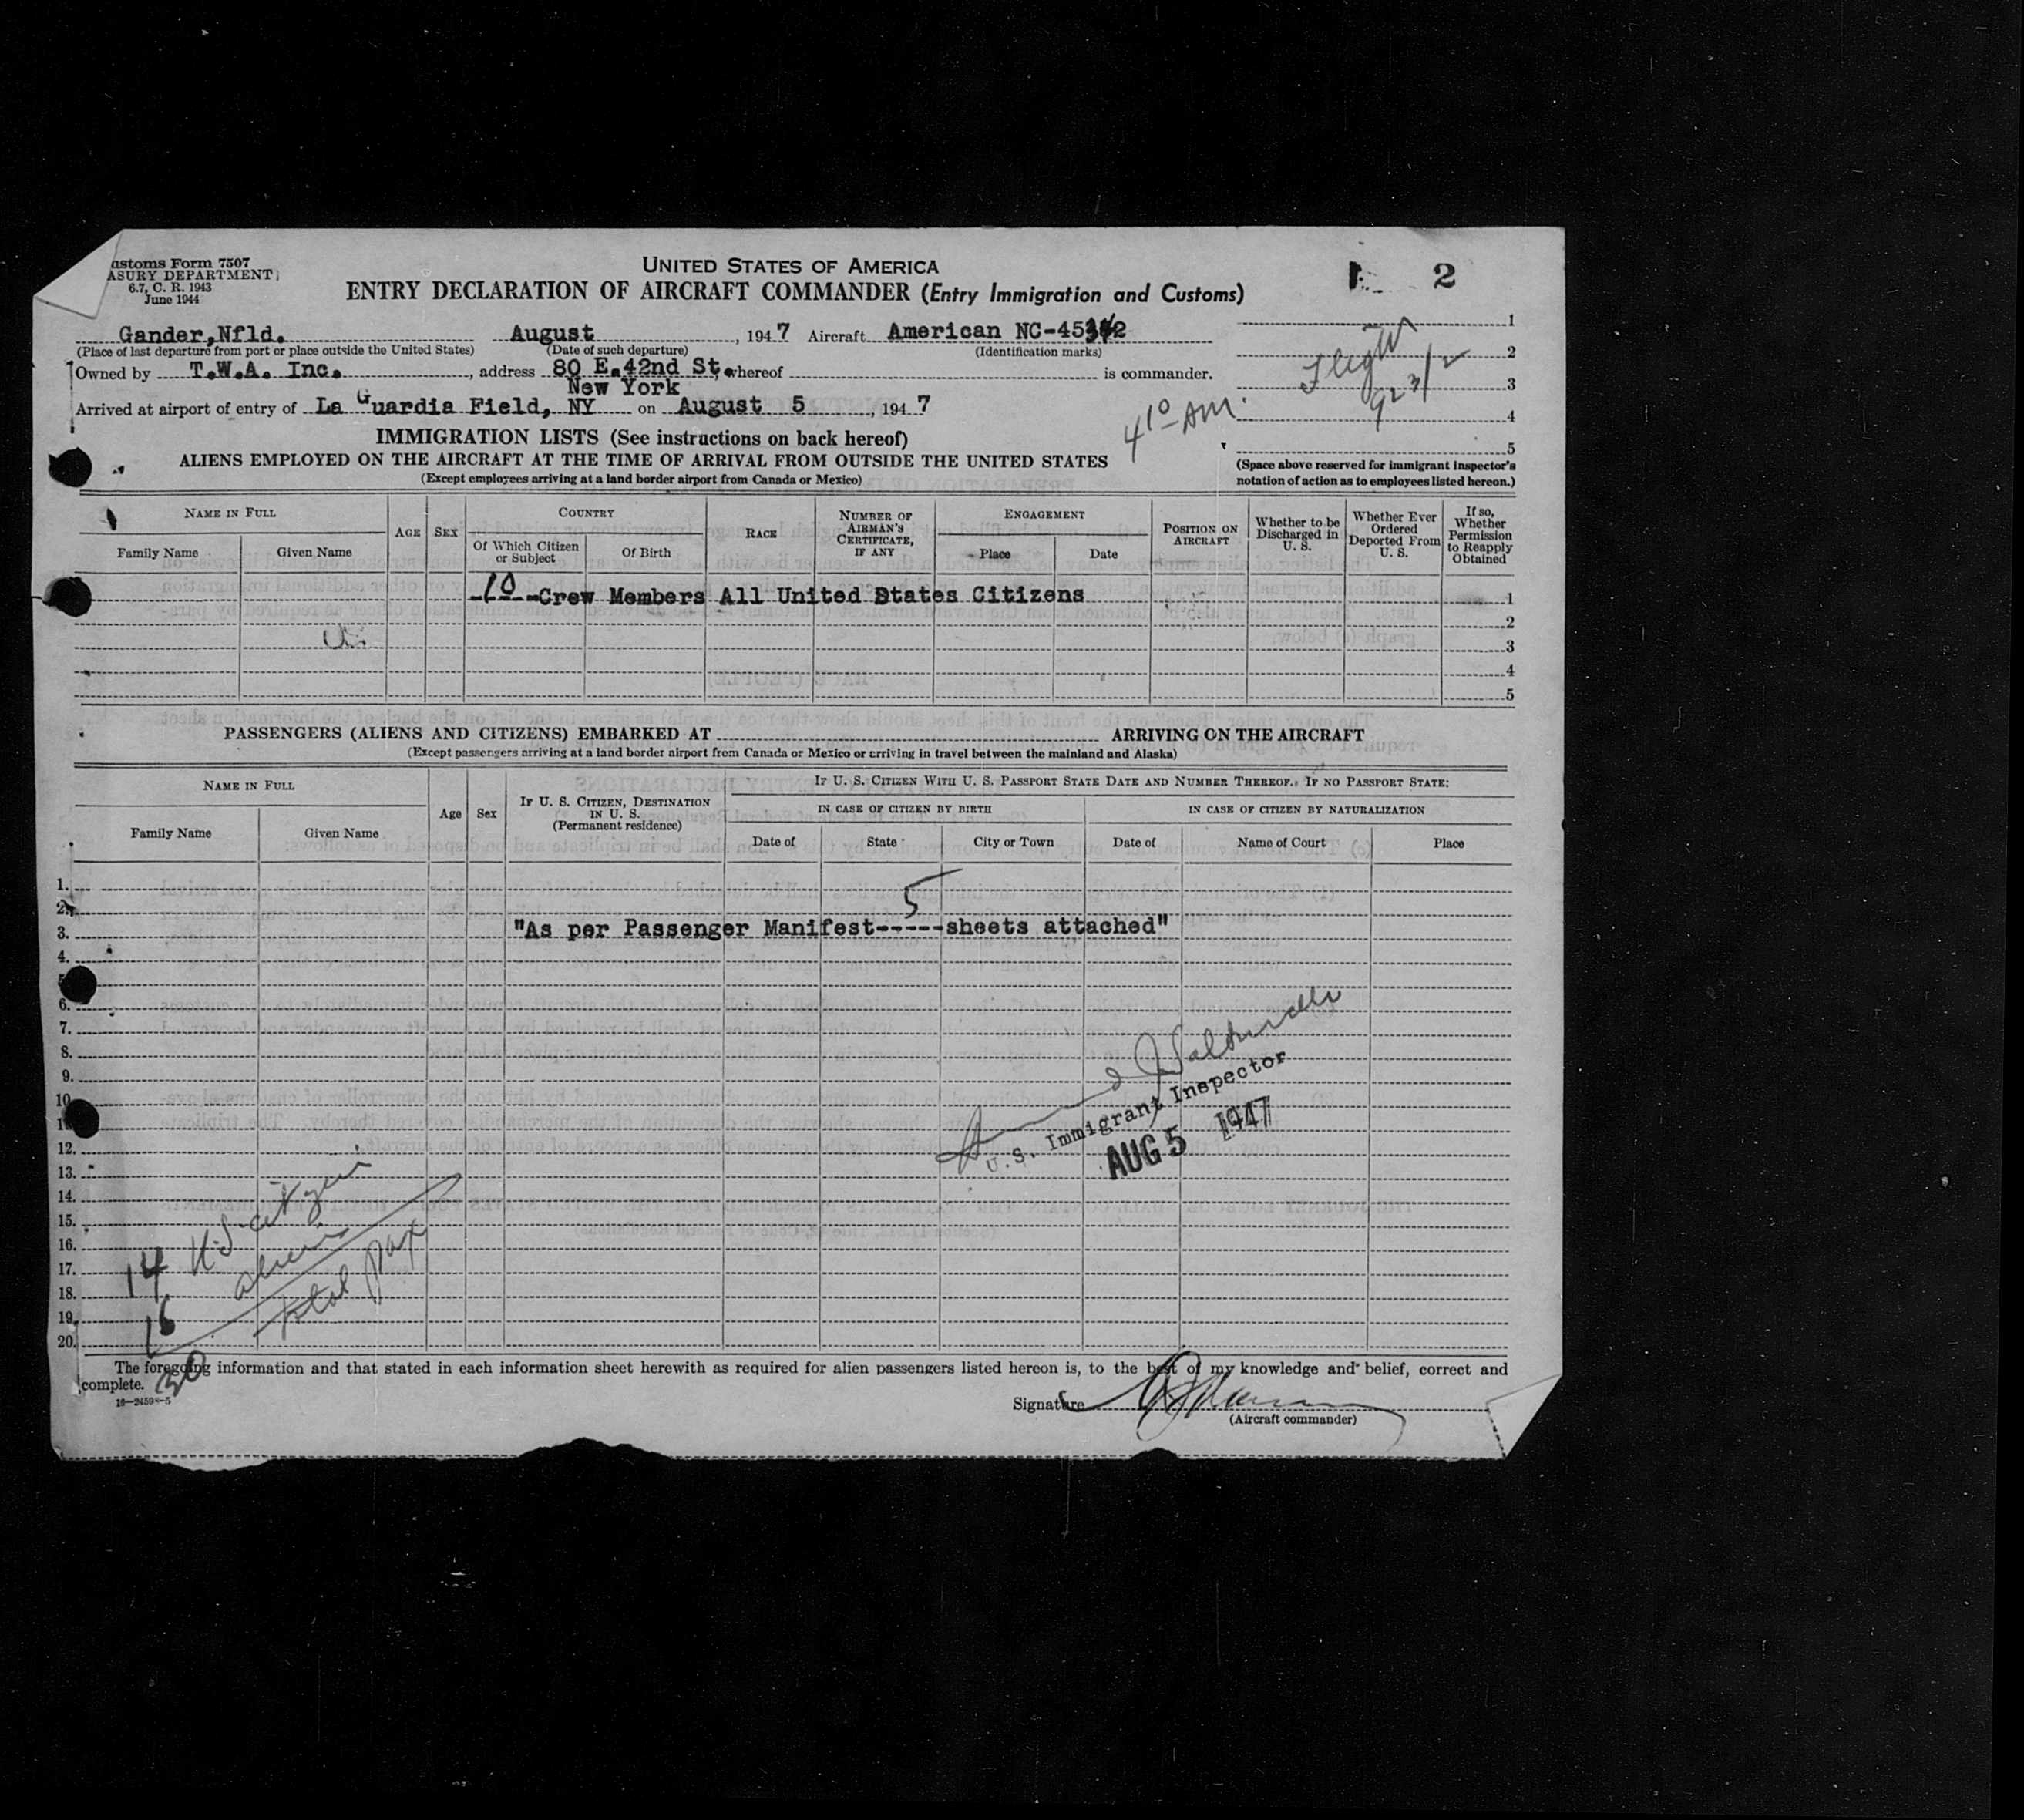 ustoms Form 7507
ASURY DEPARTMENT
6.7, C. R. 1943
June 1944
UNITED STATES OF AMERICA
ENTRY DECLARATION OF AIRCRAFT COMMANDER (Entry Immigration and Customs)
2
Gander,Nfld. August , 1947 Aircraft American NC-45342
(Place of last departure from port or place outside the United States) (Date of such departure) (Identification marks)
Owned by T.W.A. Inc. , address 80 E.42nd St. whereof is commander.
New York
Arrived at airport of entry of La Guardia Field, NY on August 5 , 1947
1
2
3
4
5
Flight
923/2
4 10 AM.
IMMIGRATION LISTS (See instructions on back hereof)
ALIENS EMPLOYED ON THE AIRCRAFT AT THE TIME OF ARRIVAL FROM OUTSIDE THE UNITED STATES
(Except employees arriving at a land border airport from Canada or Mexico)
(Space above reserved for immigrant inspector's
notation of action as to employees listed hereon.)
NAME IN FULL
Family Name Given Name
AGE SEX
COUNTRY
Of Which Citizen or Subject Of Birth
RACE
NUMBER OF AIRMAN'S CERTIFICATE, IF ANY
ENGAGEMENT
Place Date
POSITION ON AIRCRAFT
Whether to be Discharged in U. S.
Whether Ever Ordered Deported From U. S.
If so, Whether Permission to Reapply Obtained
-10--Crew Members All United States Citizens
1
2
3
4
5
PASSENGERS (ALIENS AND CITIZENS) EMBARKED AT ARRIVING ON THE AIRCRAFT
(Except passengers arriving at a land border airport from Canada or Mexico or arriving in travel between the mainland and Alaska)
NAME IN FULL
Family Name Given Name
Age Sex
IF U. S. CITIZEN, DESTINATION IN U. S.
(Permanent residence)
IF U. S. CITIZEN WITH U. S. PASSPORT STATE DATE AND NUMBER THEREOF. IF NO PASSPORT STATE:
IN CASE OF CITIZEN BY BIRTH IN CASE OF CITIZEN BY NATURALIZATION
Date of State City or Town Date of Name of Court Place
1.
2.
5
3.
"As per Passenger Manifest-----sheets attached"
4.
6.
7.
8.
9.
10
12.
13.
14.
15.
16.
17.
18.
19.
20.
U.S. Immigrant Inspector
AUG 5 1947
14 U.S citizens
16 aliens
30 total pax
The foregoing information and that stated in each information sheet herewith as required for alien passengers listed hereon is, to the best of my knowledge and belief, correct and
complete.
16—24598-5
Signature
(Aircraft commander)